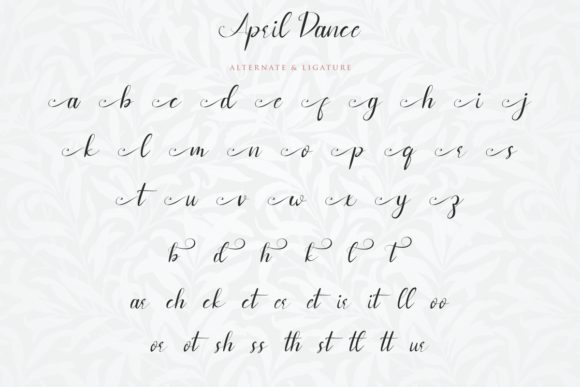 April Dance
ALTERNATE & LIGATURE
a b c d e f g h i j
k l m n o p q r s
t u v w x y z
b d h k l t
ar ch ck ct er et ir it ll oo
or ot sh ss th st tl tt ur